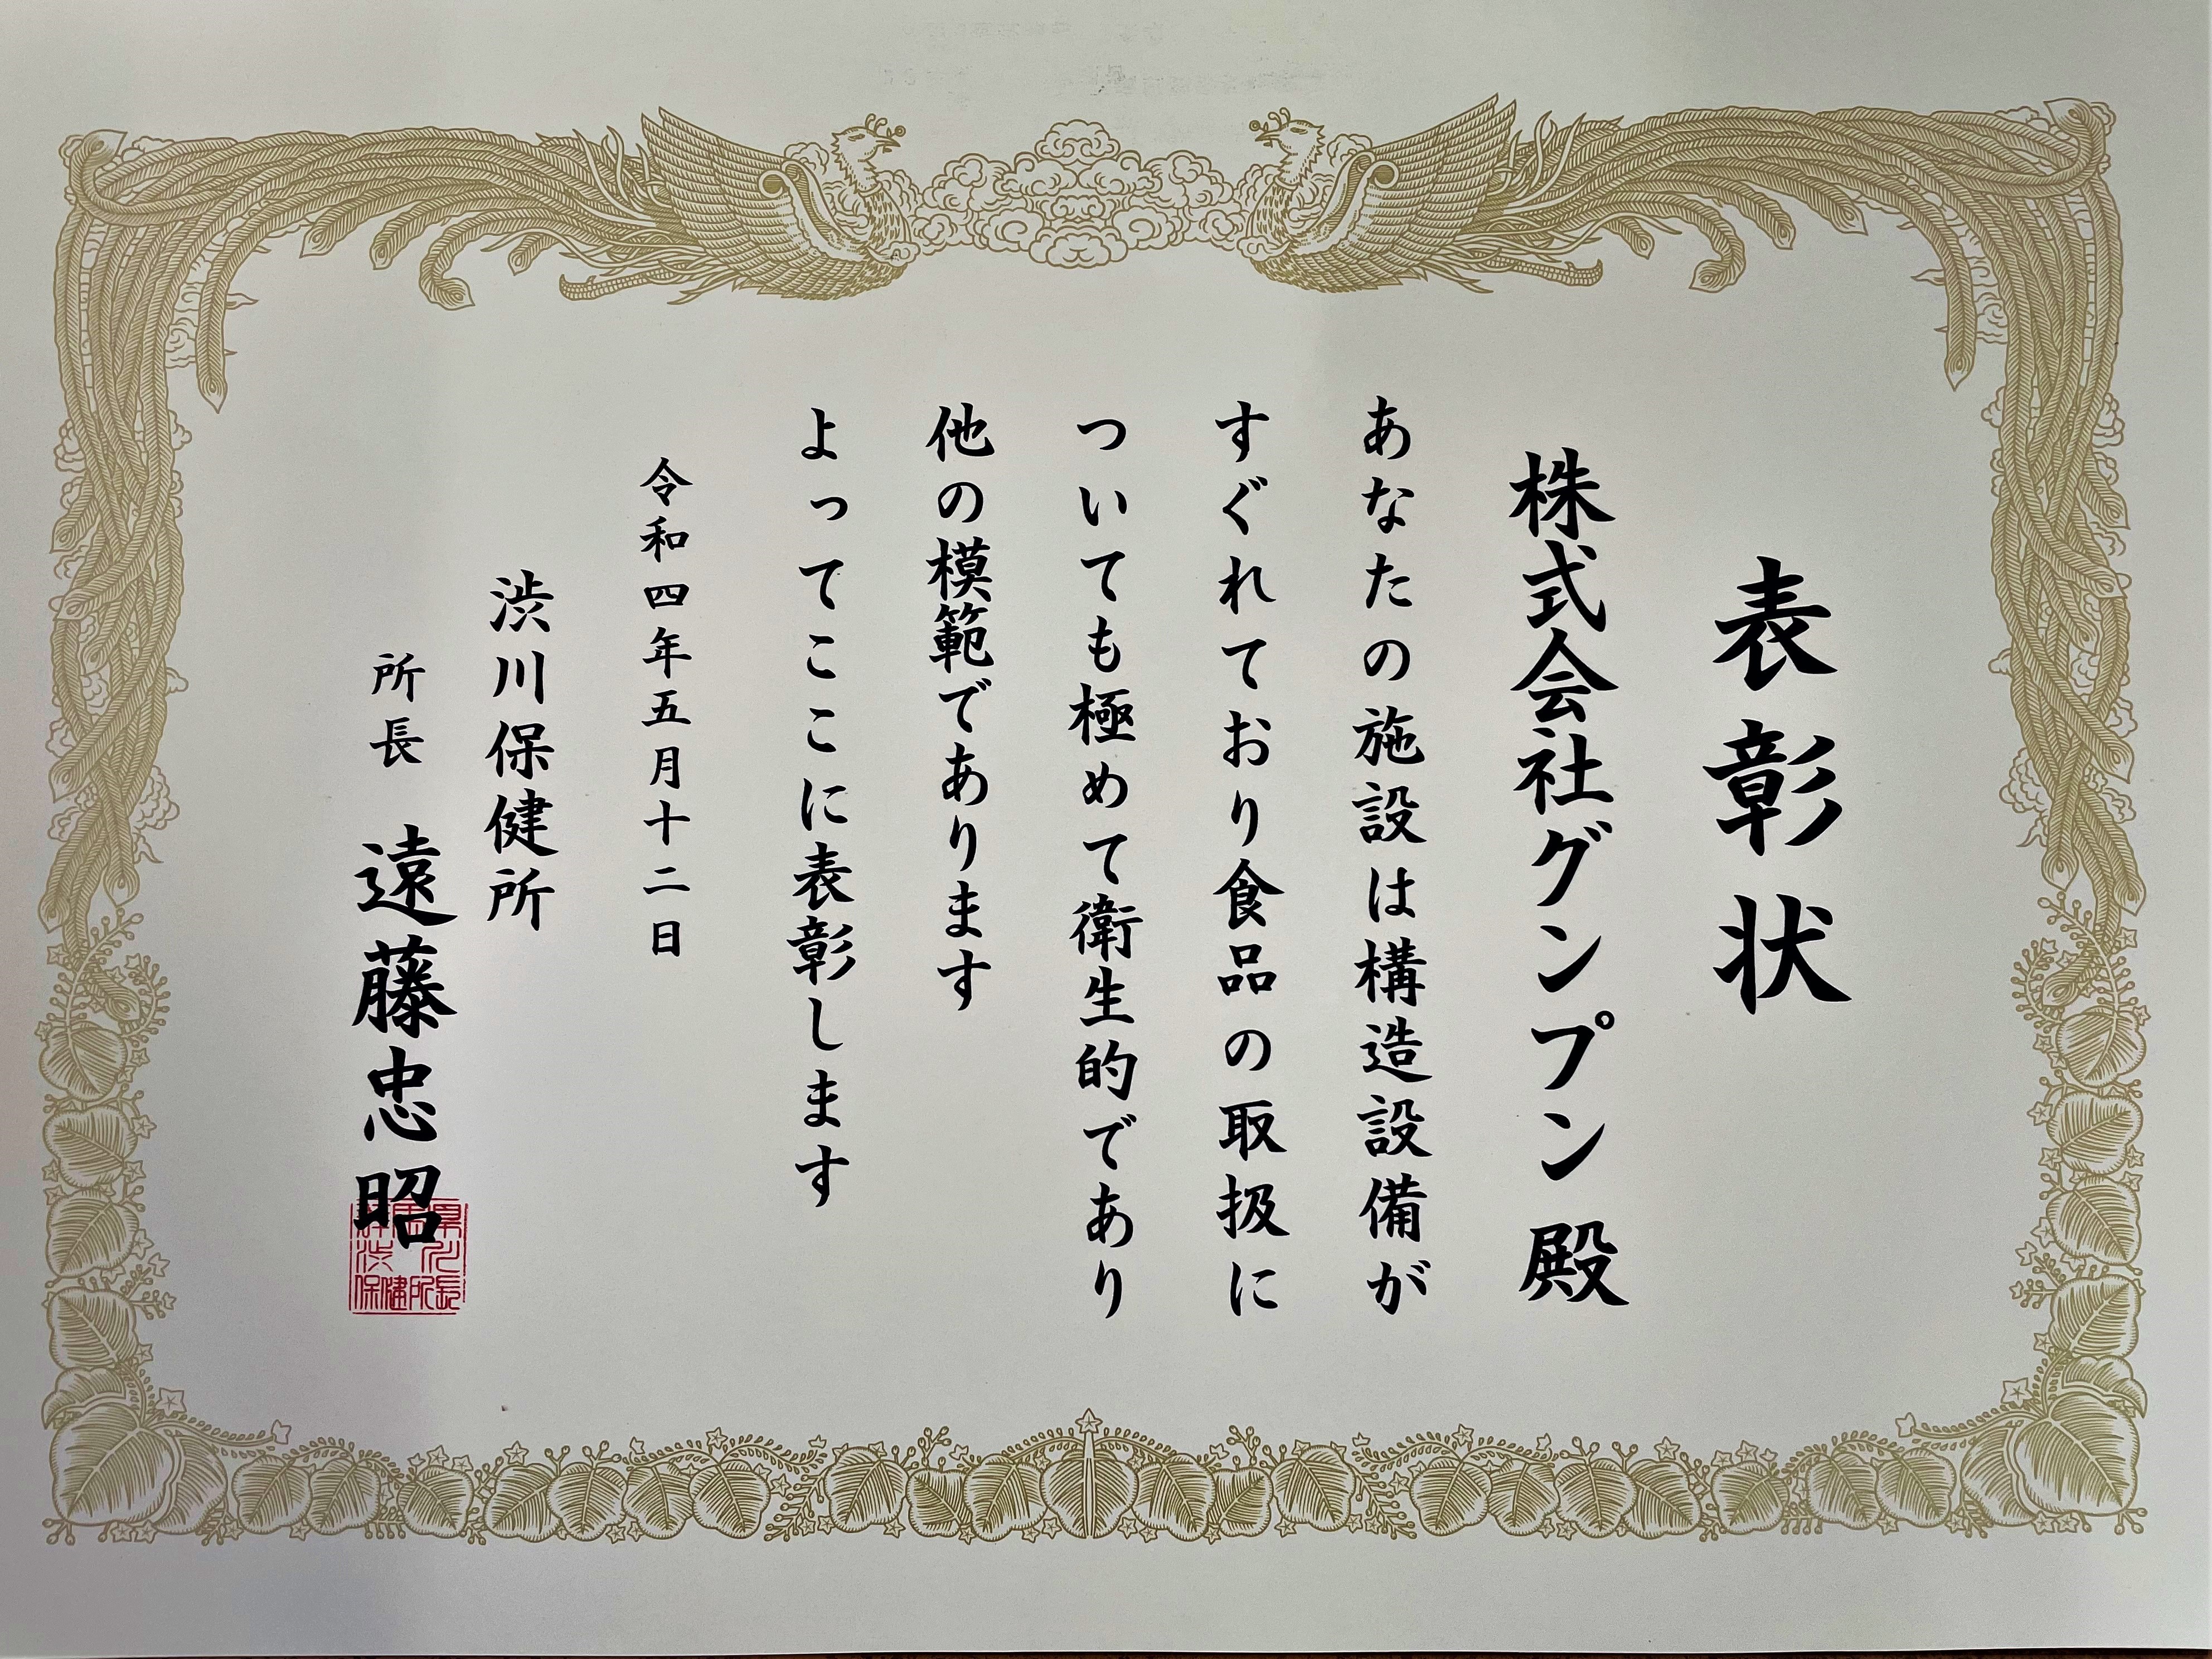 表彰状
株式会社グンプン 殿
あなたの施設は構造設備が
すぐれており食品の取扱に
ついても極めて衛生的であり
他の模範であります
よってここに表彰します
令和四年五月十二日
渋川保健所
所長 遠藤忠昭